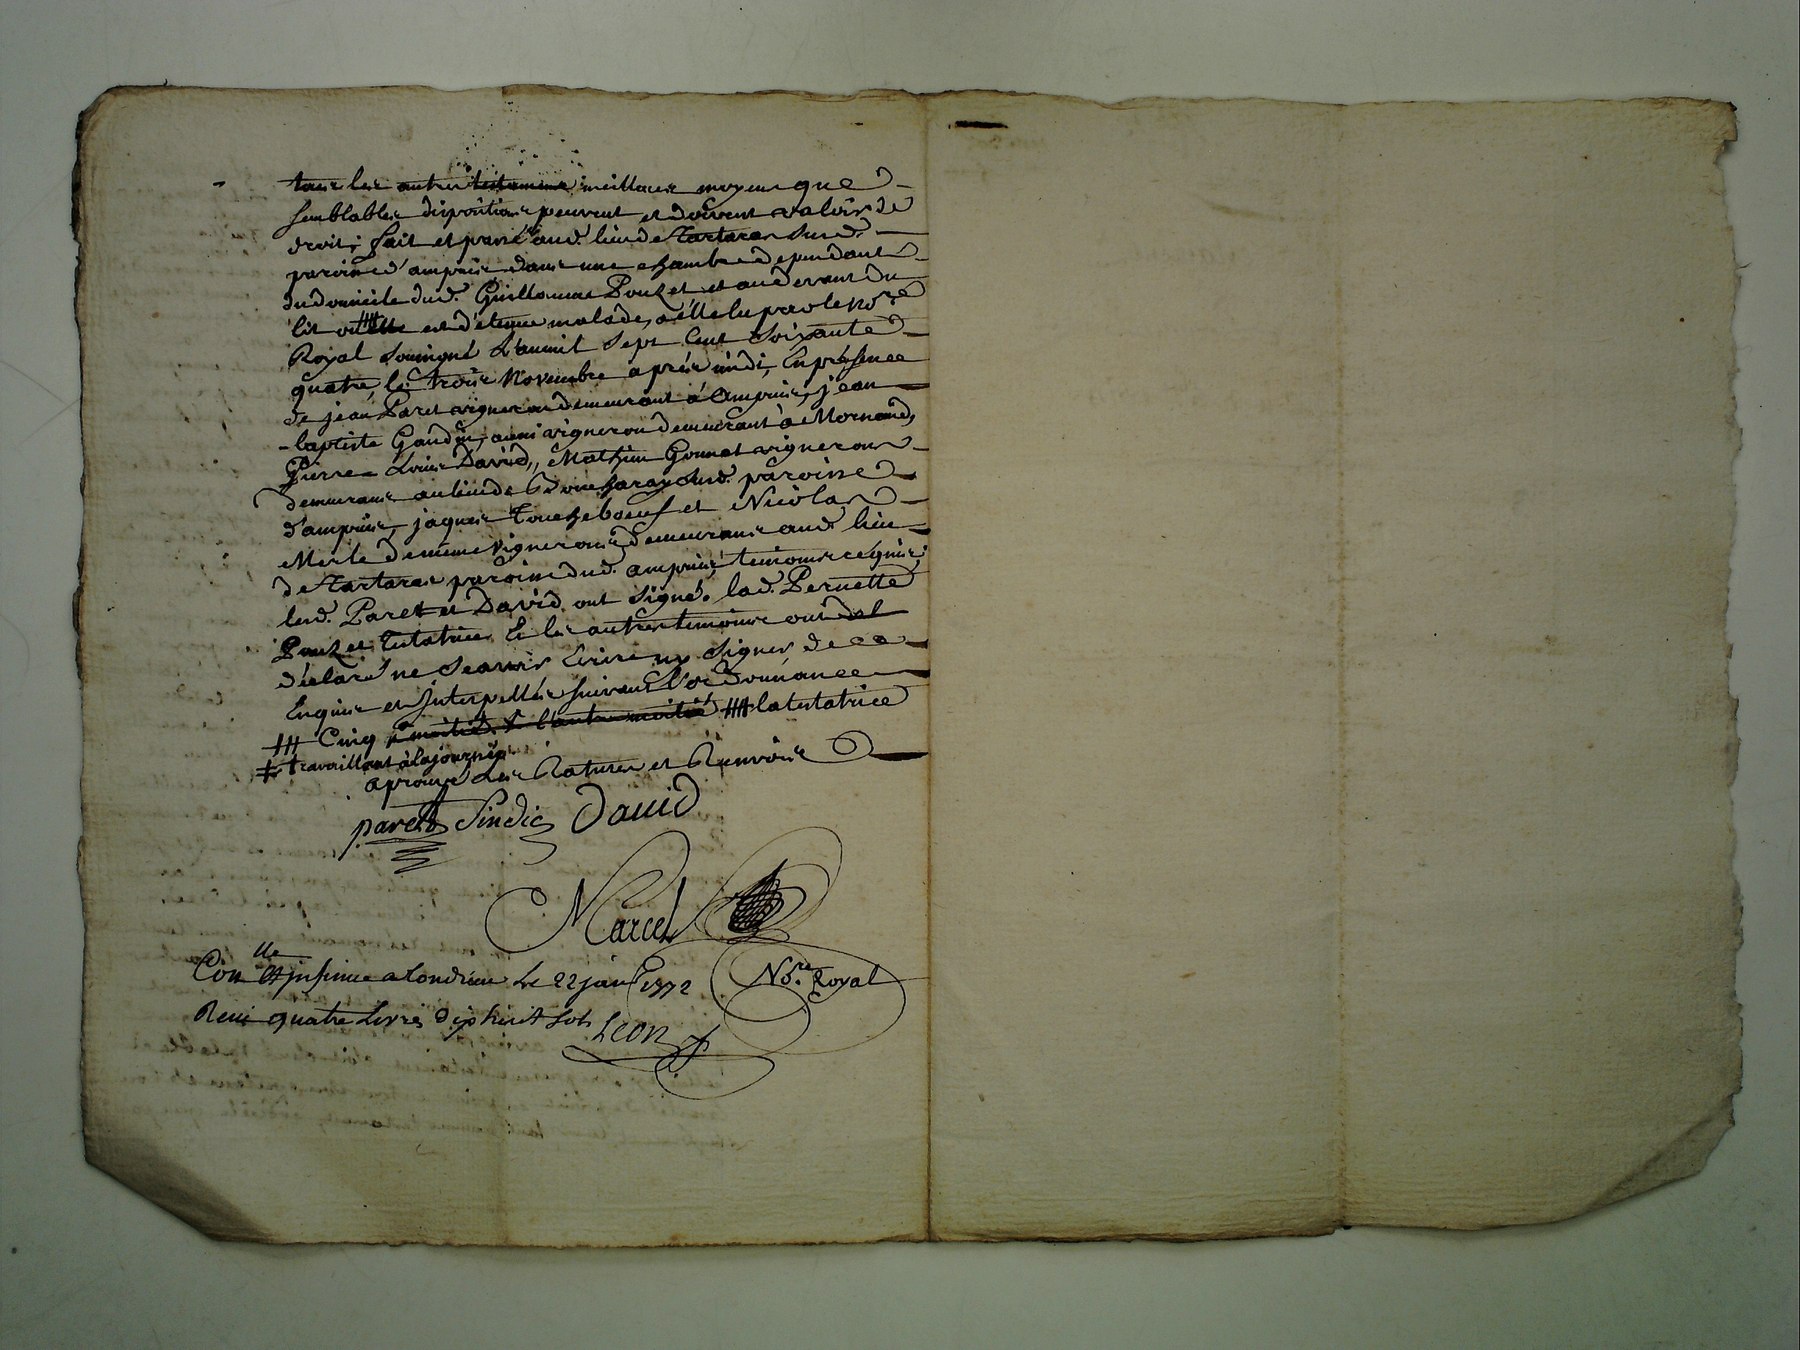 tous les autres testamens meilleurs moyens que
semblables dispositions peuvent et doivent valoir de
droit; fait et passé aud. lieu de Tartaras susd.
paroisse d'ampuis dans une chambre dependant
du domicile dud. Guillaume Pouzet et audevant du
lit où elle est détenue malade, a elle lu par le No.re
Royal soussigné L'an mil sept Cent soixante
quatre le trois Novembre après midi, En présence
de jean Paret vigneron demeurant à Ampuis, jean
baptiste Gaudin, aussi vigneron demeurant à Mornand,
Pierre Louis David, Mathieu Gonnet vignerons
demeurans au lieu de susd. paroisse
d'ampuis, jaques Toucheboeuf et Nicolas
Merle de meme vignerons demeurans aud. lieu
de Tartaras paroisse dud. ampuis temoins requis
lesd. Paret et David ont signé. lad. Pernette
Pouzet Testatrice Et les autres temoins ont
déclaré ne sçavoir Ecrire ny signer de ce
Enquis et Interpellés suivant l'ordonnance
Cinq moitié & l'autre moitié la testatrice
travaillant à la journée
aprouvé Les Ratures et Renvois
paret Sindic David
Marcel
No.re Royal
Con.lle et insinué a Condrieu Le 22 jan 1772
Reçu quatre Livres dix huit sols
Leon